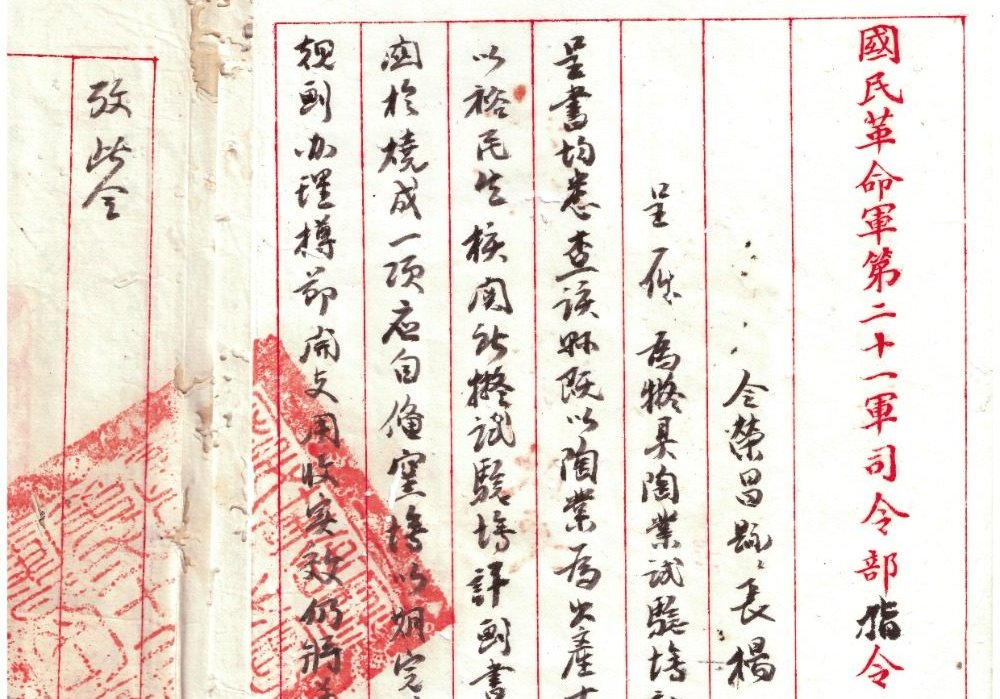 國民革命軍第二十一軍司令部指令
令榮昌縣縣長楊
呈一件為擬具陶業試驗場
呈書均悉查該縣既以陶業為出產
以裕民生核閱所擬試驗場計劃書
關於燒成一項應自備窯塲以期完
規劃办理撙節開支用收实效仍將
此令